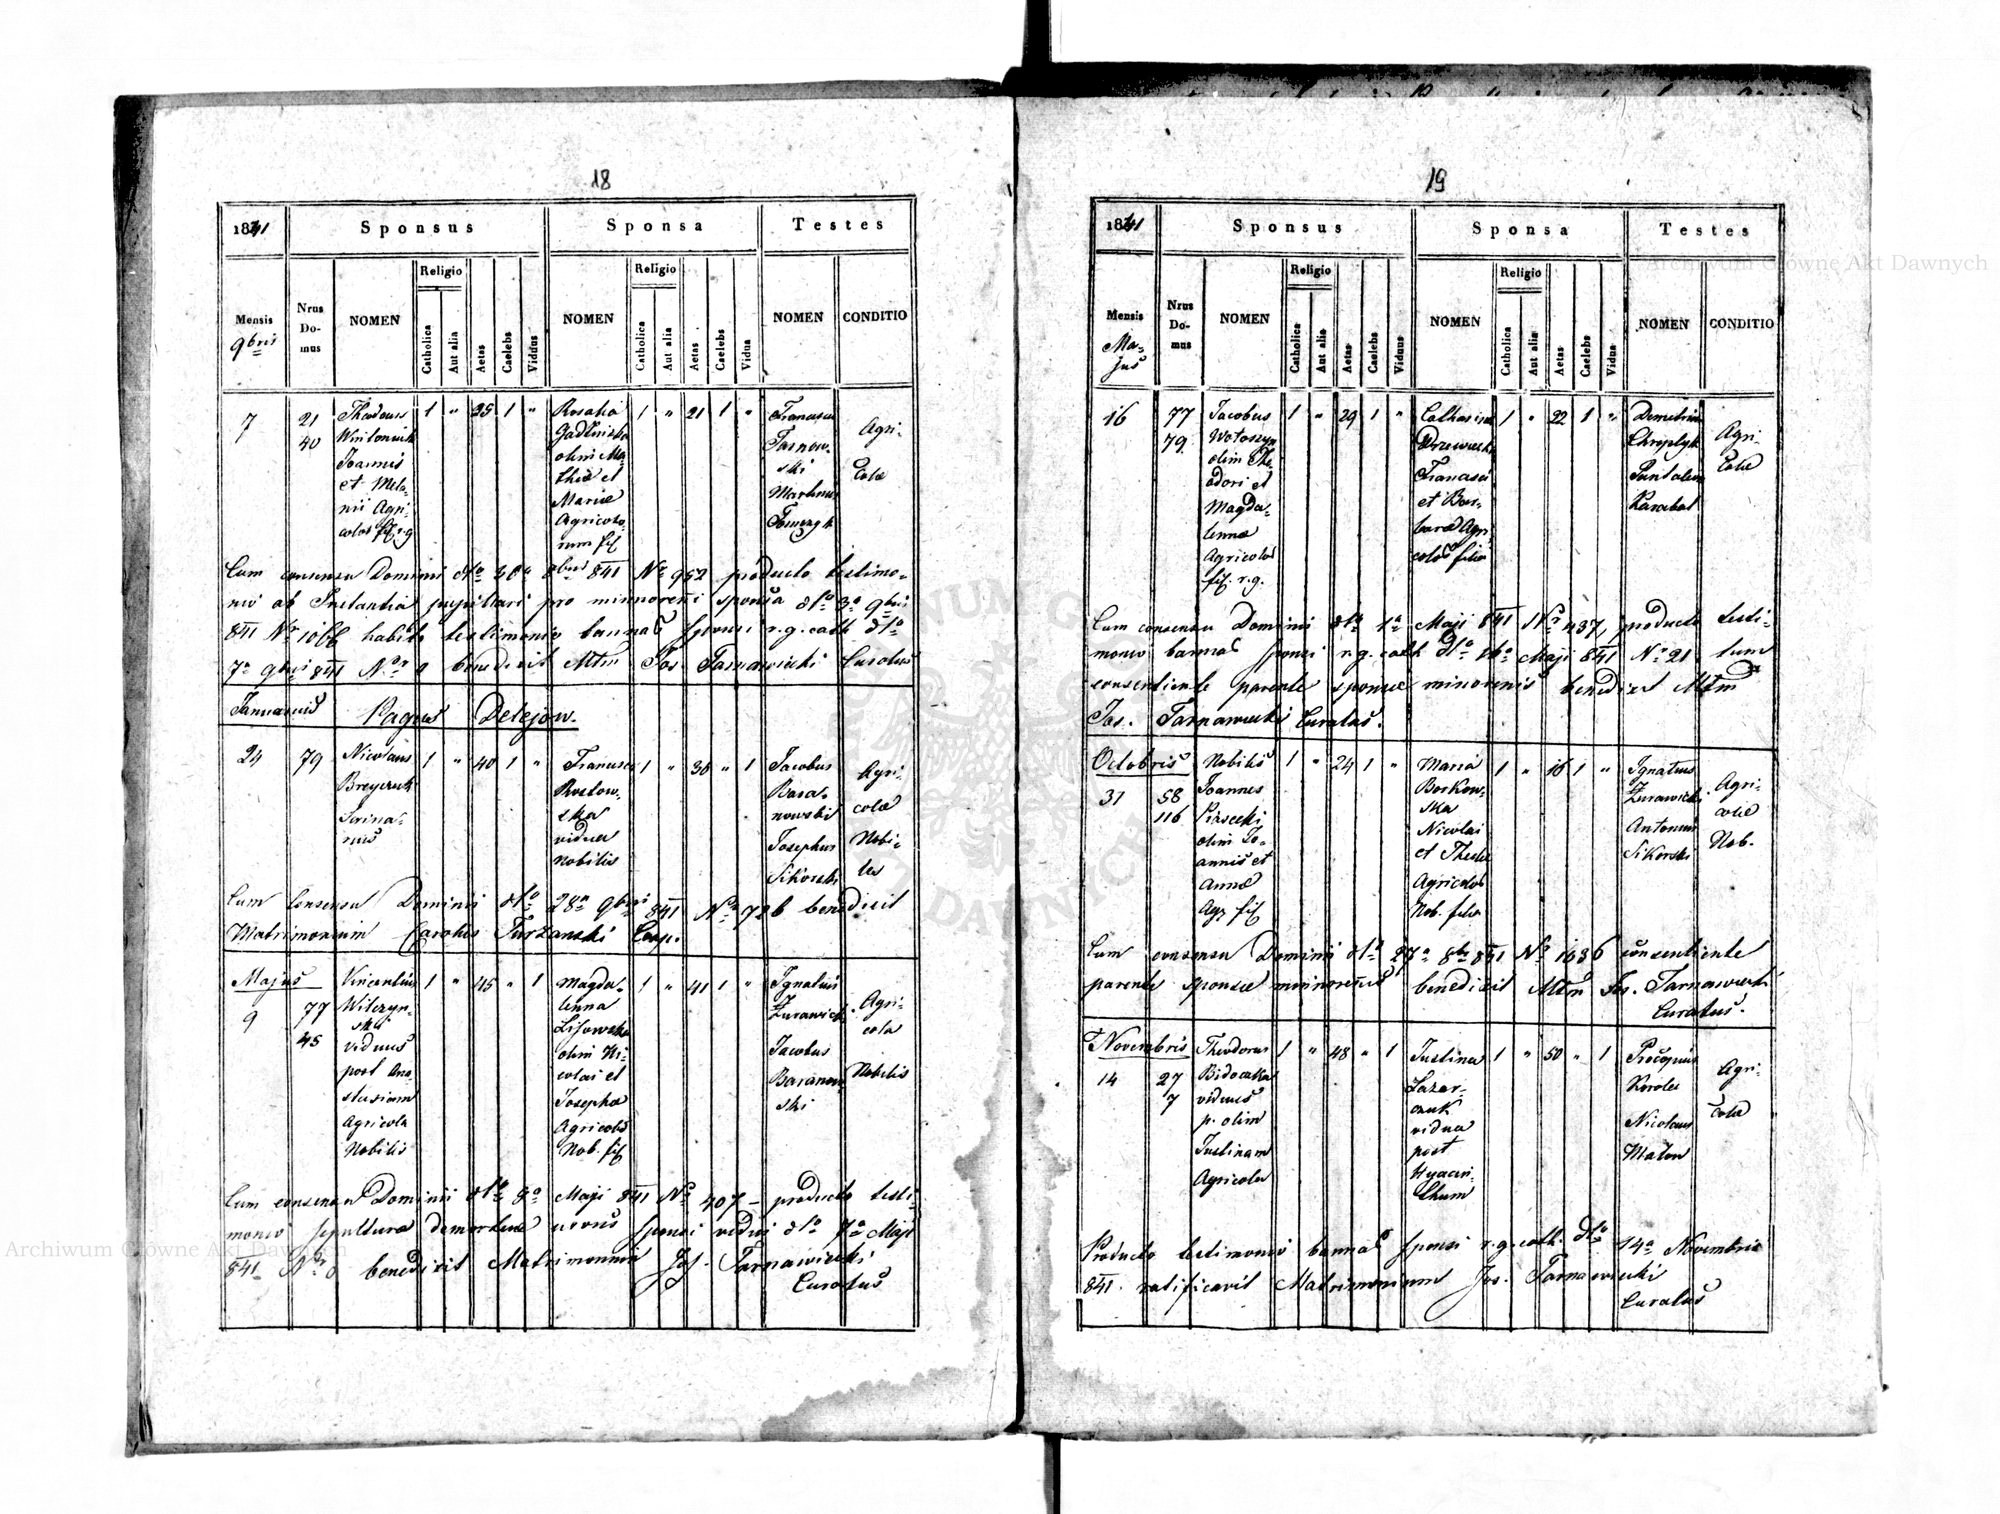 18
1841
Sponsus
Sponsa
Testes
Mensis
9bris
Nrus
Do-
mus
NOMEN
Religio
Catholica
Aut alia
Aetas
Caelebs
Viduus
NOMEN
Religio
Catholica
Aut alia
Aetas
Caelebs
Vidua
NOMEN
CONDITIO
7
21
40
Theodorus
Joannis
et Mela-
nii Agri-
colar fil r.g
1 " 25 1 "
Rosalia
olim Ma-
thiæ et
Mariæ
Agricolo-
rum fil
1 " 21 1 "
Franciscus
Tarnow-
ski
Martinus
Agri-
colæ
Cum consensu Dominii dto 30a 8bris 841 Nr 952 producto testimo-
nio ab Instantia pupillari pro minnoreni sponsa dto 3a 9bris
841 Nr habito testimonio bannor sponsi r.g. cath dto
7a 9bris 841 Nr 9 benedixit Mtm Jos Tarnawiecki Curatus
Januarius
Pagus Delejow.
24
79
Nicolaus
1 " 40 1 "
Francisca
Rostow-
ska
vidua
nobilis
1 " 30 " 1
Jacobus
Bara-
nowski
Josephus
Sikorski
Agri-
colæ
Nobi-
les
Cum Consensu Dominii dto 28a 9bris 841 Nr 726 benedixit
Matrimonium Carolus Turzanski Coop.
Majus
9
77
45
Vincentius
Wilczyn-
ski
viduus
post Ana-
stasiam
Agricola
Nobilis
1 " 45 " 1
Magda-
lenna
Lisowska
olim Ni-
colai et
Josepha
Agricolar
Nob. fil
1 " 41 1 "
Ignatius
Zurawicki
Jacobus
Baranow-
ski
Agri-
cola
Nobilis
Cum consensu Dominii dto 8a Maji 841 Nr 407 – producto testi-
monio sepulturæ demortuæ uxoris sponsi vidui dto 7a Maji
841 Nr benedixit Matrimonium Jos. Tarnawiecki
Curatus
19
1841
Sponsus
Sponsa
Testes
Mensis
Ma-
jus
Nrus
Do-
mus
NOMEN
Religio
Catholica
Aut alia
Aetas
Caelebs
Viduus
NOMEN
Religio
Catholica
Aut alia
Aetas
Caelebs
Vidua
NOMEN
CONDITIO
16
77
79
Jacobus
Wołoszyn
olim The-
odori et
Magda-
lenna
Agricolar
fil. r.g.
1 " 29 1 "
Catharina
Francisci
et Bar-
bara Agri-
colar filia
1 " 22 1 "
Demetrius
Agri-
colæ
Cum consensu Dominii dto Maji 841 Nr 437, producto testi-
monio bannor sponsi r.g. cath dto 16a Maji 841 Nr 21. tum
consentiente parente sponsæ minorenis benedixit Mtm
Jos. Tarnawiecki Curatus.
Octobris
31
58
116
Nobilis
Joannes
Piasecki
olim Jo-
annis et
Annæ
Agr fil
1 " 24 1 "
Maria
Borkow-
ska
Nicolai
et Theclæ
Agricolar
Nob. filia
1 " 16 1 "
Ignatius
Zurawicki
Antonius
Sikorski
Agri-
colæ
Nob.
Cum consensu Dominii dto 27a 8bris 841 Nr 1036 consentiente
parente sponsæ minnorenis benedixit Mtm Jos. Tarnawiecki
Curatus.
Novembris
14
27
7
Theodorus
Bidoczka
viduus
p. olim
Justinam
Agricola
1 " 48 " 1
Justina
Lazar-
czuk
vidua
post
Hyacin-
thum
1 " 50 " 1
Procopius
Nicolaus
Agri-
colæ
Producto testimonio bannor sponsi r.g. cath. dto 14a Novembris
841. ratificavit Matrimonium Jos. Tarnawiecki
Curatus
Archiwum Główne Akt Dawnych
Archiwum Główne Akt Dawnych